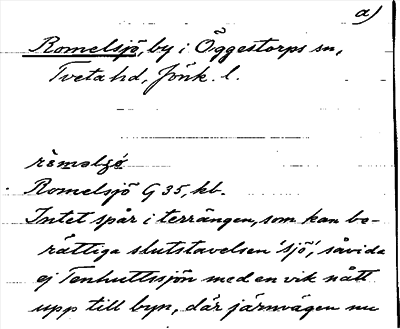 a)
Romelsjö, by i Öggestorps sn,
Tveta hd, Jönk. l.
Romelsjö G 35, kb.
Intet spår i terrängen, som kan be-
rättiga slutstavelsen 'sjö', såvida
ej Tenhultssjön med en vik nått
upp till byn, där järnvägen nu